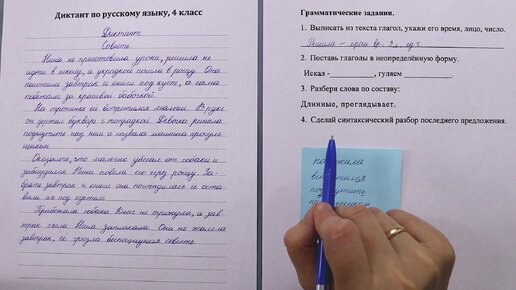 Диктант по русскому языку, 4 класс
Диктант.
Совесть
Нина не приготовила уроки, решила не
идти в школу, а украдкой пошла в рощу. Она
положила завтрак и книги под куст, а сама
побежала за красивой бабочкой.
На тропинке ей встретился малыш. В руке
он держал букварь с тетрадкой. Девочка решила
подшутить над ним и назвала малыша прогуль
щиком.
Оказалось, что мальчик убегал от собаки и
заблудился. Нина повела его через рощу. За-
брать завтрак и книги она постыдилась и оста-
вила их под кустом.
Прибежала собака. Книг не тронула, а зав
трак съела. Нина заплакала. Она не жалела
завтрак, её грызла беспощадная совесть.
Грамматические задания.
1. Выписать из текста глагол, укажи его время, лицо, число.
Решила – прош. вр.
2. Поставь глаголы в неопределённую форму.
Искал - , гуляем
3. Разбери слова по составу:
Длинные, проглядывает.
4. Сделай синтаксический разбор последнего предложения.
положила
встретился
подшутить